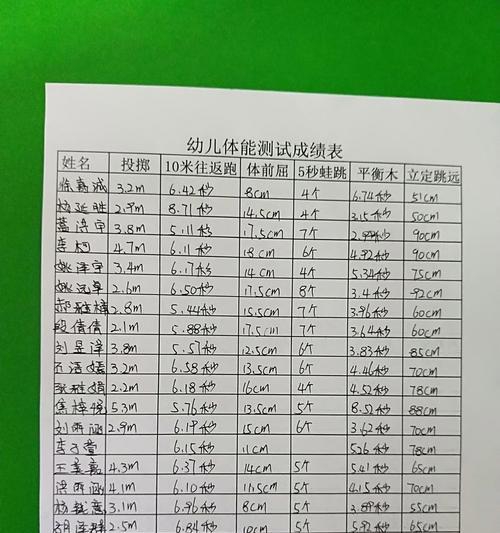 幼儿体能测试成绩表
姓名 投掷 10米往返跑 体前屈 5秒蛙跳 平衡木 立定跳远
徐嘉诚 3.2m 6.42秒 8cm 4个 6.74秒 51cm
杨延胜 2.9m 8.71秒 14.5cm 4个 3.15秒 50cm
3.8m 5.11秒 17.5cm 7个 2.99秒 90cm
李柯 4.7m 6.11秒 18cm 6个 4.92秒 90cm
姚泽宇 3.4m 6.17秒 14cm 4个 5.34秒 75cm
2.6m 6.50秒 17.5cm 8个 3.4秒 92cm
2.8m 5.44秒 15.5cm 7个 3.96秒 60cm
段倩倩 2.1m 5.88秒 17.5cm 7个 3.64秒 60cm
刘昱泽 3.8m 5.57秒 12.5cm 6个 3.83秒 85cm
3.2m 6.58秒 13.5cm 6个 4.46秒 70cm
2.2m 6.18秒 16cm 4个 4.52秒 78cm
焦梓 5.3m 5.76秒 13.5cm 5个 8.52秒 88cm
刘雨涵 2.9m 6.19秒 15cm 6个 3.62秒 70cm
李子萱 6.15秒 11cm 5.26秒 78cm
王嘉 4.3m 6.37秒 14cm 5个 5.41秒 65cm
雨涵 4.1m 6.10秒 11.5cm 5个 4.15秒 70cm
杨 3.1m 6.96秒 8cm 5个 3.89秒 55cm
2.5m 6.84秒 10cm 5个 5.92秒 65cm